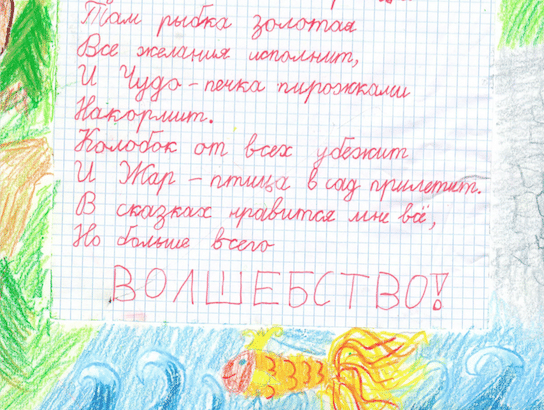 Там рыбка золотая
Все желания исполнит,
И Чудо - печка пирожками
Накормит.
Колобок от всех убежит
И Жар - птица в сад прилетит.
В сказках нравится мне всё,
Но больше всего
ВОЛШЕБСТВО!